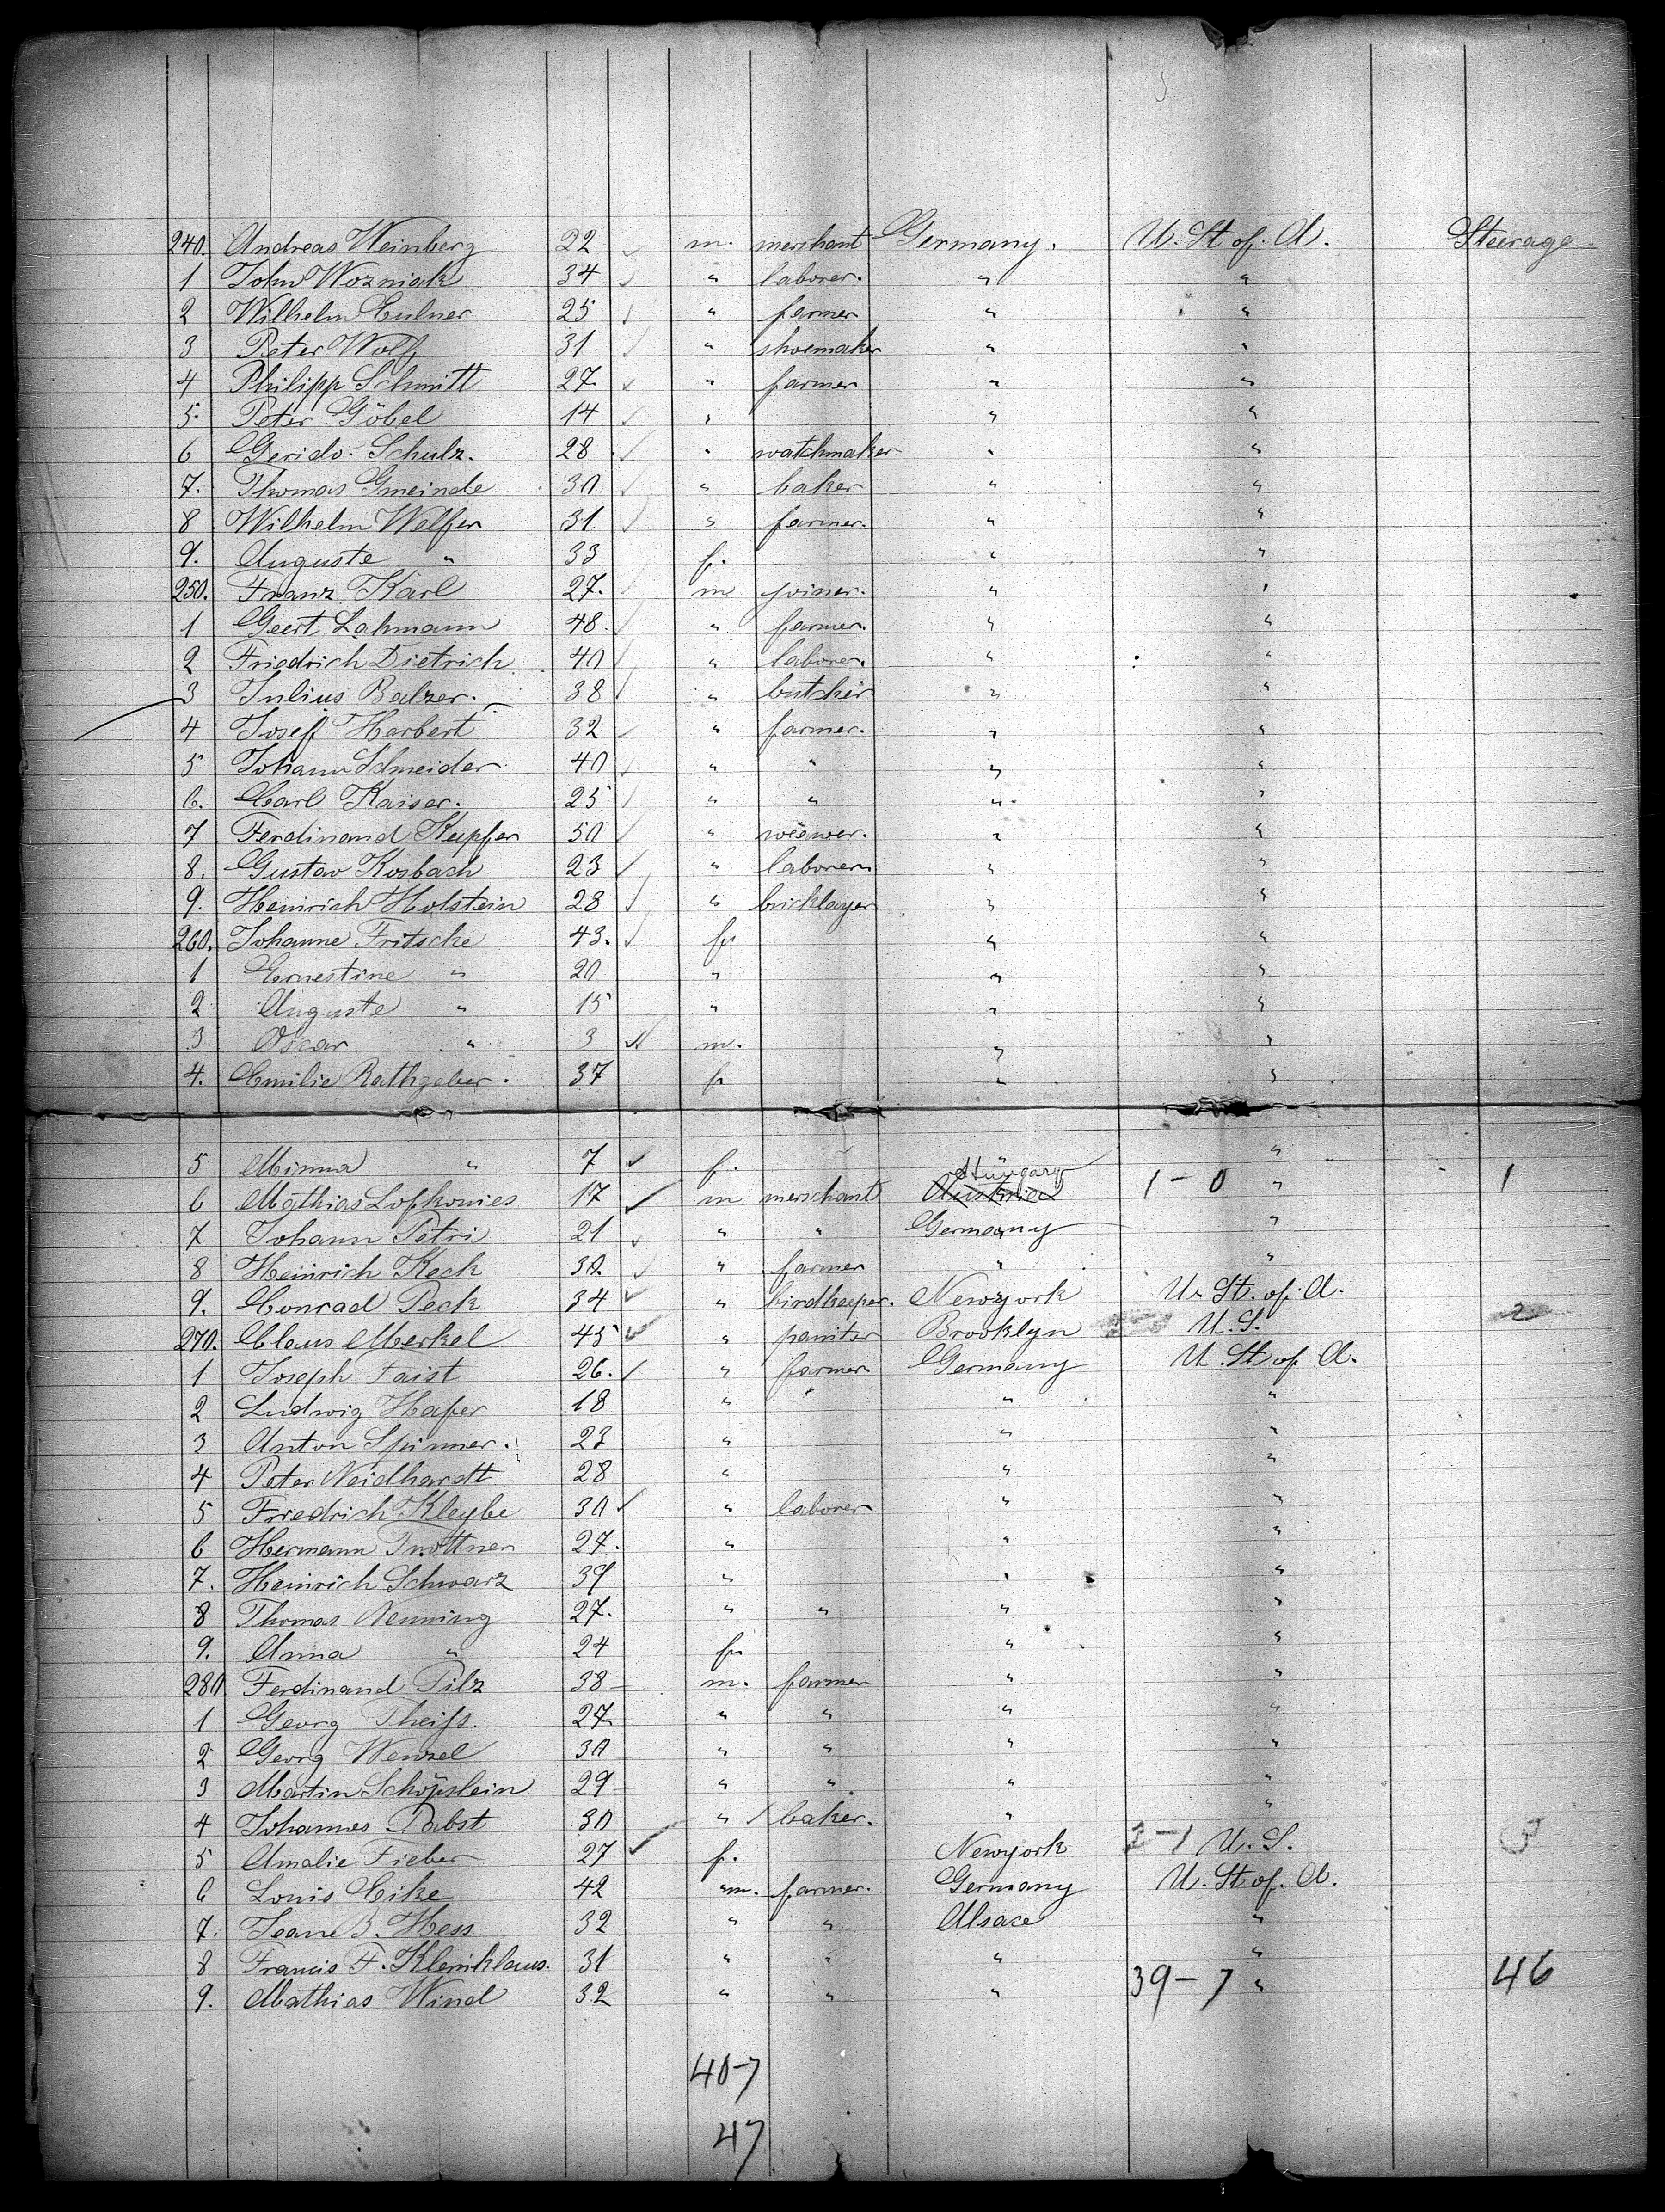 240. Andreas Weinberg 22 m. merchant Germany. U. St of. A. Steerage.
1 John Wozniak 34 " laborer. " "
2 Wilhelm Eulner 25 " farmer " "
3 Peter Wolf 31 " shoemaker " "
4 Philipp Schmitt 27. " farmer " "
5. Peter Göbel 14 " " "
6 Gerido Schulz. 28 " watchmaker " "
7. Thomas Gmeinde 30 " baker " "
8 Wilhelm Welfer 31 " farmer. " "
9. Auguste " 33 f. " "
250. Franz Karl 27. m joiner. " "
1 Geert Lahmann 48. " farmer. " "
2 Friedrich Dietrich 40 " laborer. " "
3 Julius Balzer. 38 " butcher " "
4 Josef Herbert 32 " farmer. " "
5 Johann Schneider. 40 " " " "
6. Carl Kaiser. 25 " " " "
7 Ferdinand Kupfer 50 " weewer. " "
8. Gustav Kosbach 23 " laborer " "
9. Heinrich Holstein 28 " bricklayer " "
260. Johanne Fritsche 43. f. " "
1 Ernestine " 20 " " "
2 Auguste " 15 " " "
3 Oscar " 3 m. " "
4. Emilie Rathgeber. 37 f " "
5 Minna " 7 f. " "
Hüngary
6 Mathias Lofkovies 17 m merschant Austria 1-0 " 1
7 Johann Petri 21 " " Germany "
8 Heinrich Keck 30. " farmer " "
9. Conrad Peck 34 " birdkeeper. Newyork U. St. of. A.
270. Claus Merkel 45 " paniter Brooklyn U. S. 2
1 Joseph Faist 26. " farmer Germany U. St of A.
2 Ludwig Hafer 18 " " " "
3 Anton Spinner. 23 " " "
4 Peter Neidhardt 28 " " "
5 Friedrich Kleybe 30 " laborer " "
6 Hermann Trottner 27. " " "
7. Heinrich Schwarz 39 " " "
8 Thomas Nenning 27. " " " "
9. Anna " 24 f. " "
280. Ferdinand Pilz 38 m. farmer " "
1 Georg Theifs. 27. " " " "
2 Georg Wenzel 30 " " " "
3 Martin Schöpslein 29 " " " "
4 Johannes Pabst 30 " baker. " "
5 Amalie Fieber 27 f. Newyork 2-1 U. S. 3
6 Louis Eike 42 m. farmer. Germany U. St of. A.
7. Jean B. Hess 32 " " Alsace "
8 Francis F. Kleniklaus. 31 " " " "
9. Mathias Wind 32 " " " 39-7 " 46
40-7
47